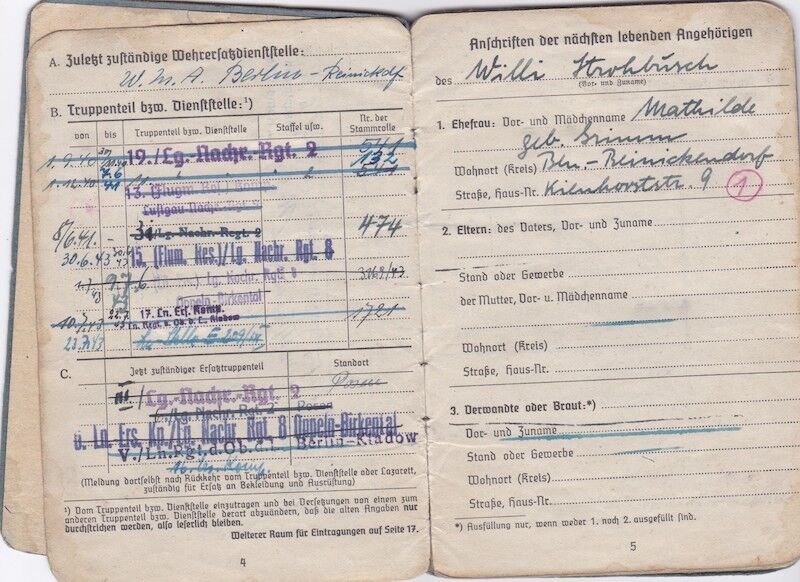 A. Zuletzt zuständige Wehrersatzdienststelle:
W. M. A. Berlin-Reinickdf
B. Truppenteil bzw. Dienststelle:¹)
von bis Truppenteil bzw. Dienststelle Staffel usw. Nr. der Stammrolle
1.9.40 19./Lg.-Nachr. Rgt. 2
132
1.12.40
Luftgau-Nachr.
8/6.41. - 3./Lg.-Nachr.-Rgt. 2 474
30.6.43 15. (Flum. Res.)/Lg. Nachr. Rgt. 8
Lg. Nachr. Rgt. 8 3068/43
Oppeln-Birkental
17. Ln. Ers. Komp. 1721
Ln. Rgt. d. Ob. d. L. Kladow
C. Jetzt zuständiger Ersatztruppenteil Standort
III/Lg.-Nachr.-Rgt. 2 Posen
Lg. Nachr. Rgt. 2 Posen
6. Ln. Ers. Kp./Lg. Nachr. Rgt. 8 Oppeln-Birkental
V./Ln.Rgt.d.Ob.d.L. Berlin-Kladow
(Meldung dortselbst nach Rückkehr vom Truppenteil bzw. Dienststelle oder Lazarett,
zuständig für Ersatz an Bekleidung und Ausrüstung)
¹) Vom Truppenteil bzw. Dienststelle einzutragen und bei Versetzungen von einem zum
anderen Truppenteil bzw. Dienststelle derart abzuändern, daß die alten Angaben nur
durchstrichen werden, also leserlich bleiben.
Weiterer Raum für Eintragungen auf Seite 17.
4
Anschriften der nächsten lebenden Angehörigen
des Willi Strohbusch
(Vor- und Zuname)
1. Ehefrau: Vor- und Mädchenname Mathilde
geb. Grimm
Wohnort (Kreis) Bln.-Reinickendorf
Straße, Haus-Nr. Kienhorststr. 9 1
2. Eltern: des Vaters, Vor- und Zuname
Stand oder Gewerbe
der Mutter, Vor- u. Mädchenname
Wohnort (Kreis)
Straße, Haus-Nr.
3. Verwandte oder Braut:*)
Vor- und Zuname
Stand oder Gewerbe
Wohnort (Kreis)
Straße, Haus-Nr.
*) Ausfüllung nur, wenn weder 1. noch 2. ausgefüllt sind.
5